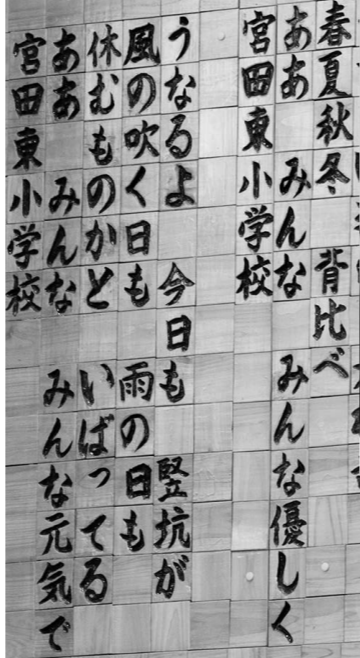 春夏秋冬　背比べ
ああ　みんな　みんな優しく
宮田東小学校
うなるよ　今日も　竪坑が
風の吹く日も　雨の日も
休むものかと　いばってる
ああ　みんな　みんな元気で
宮田東小学校